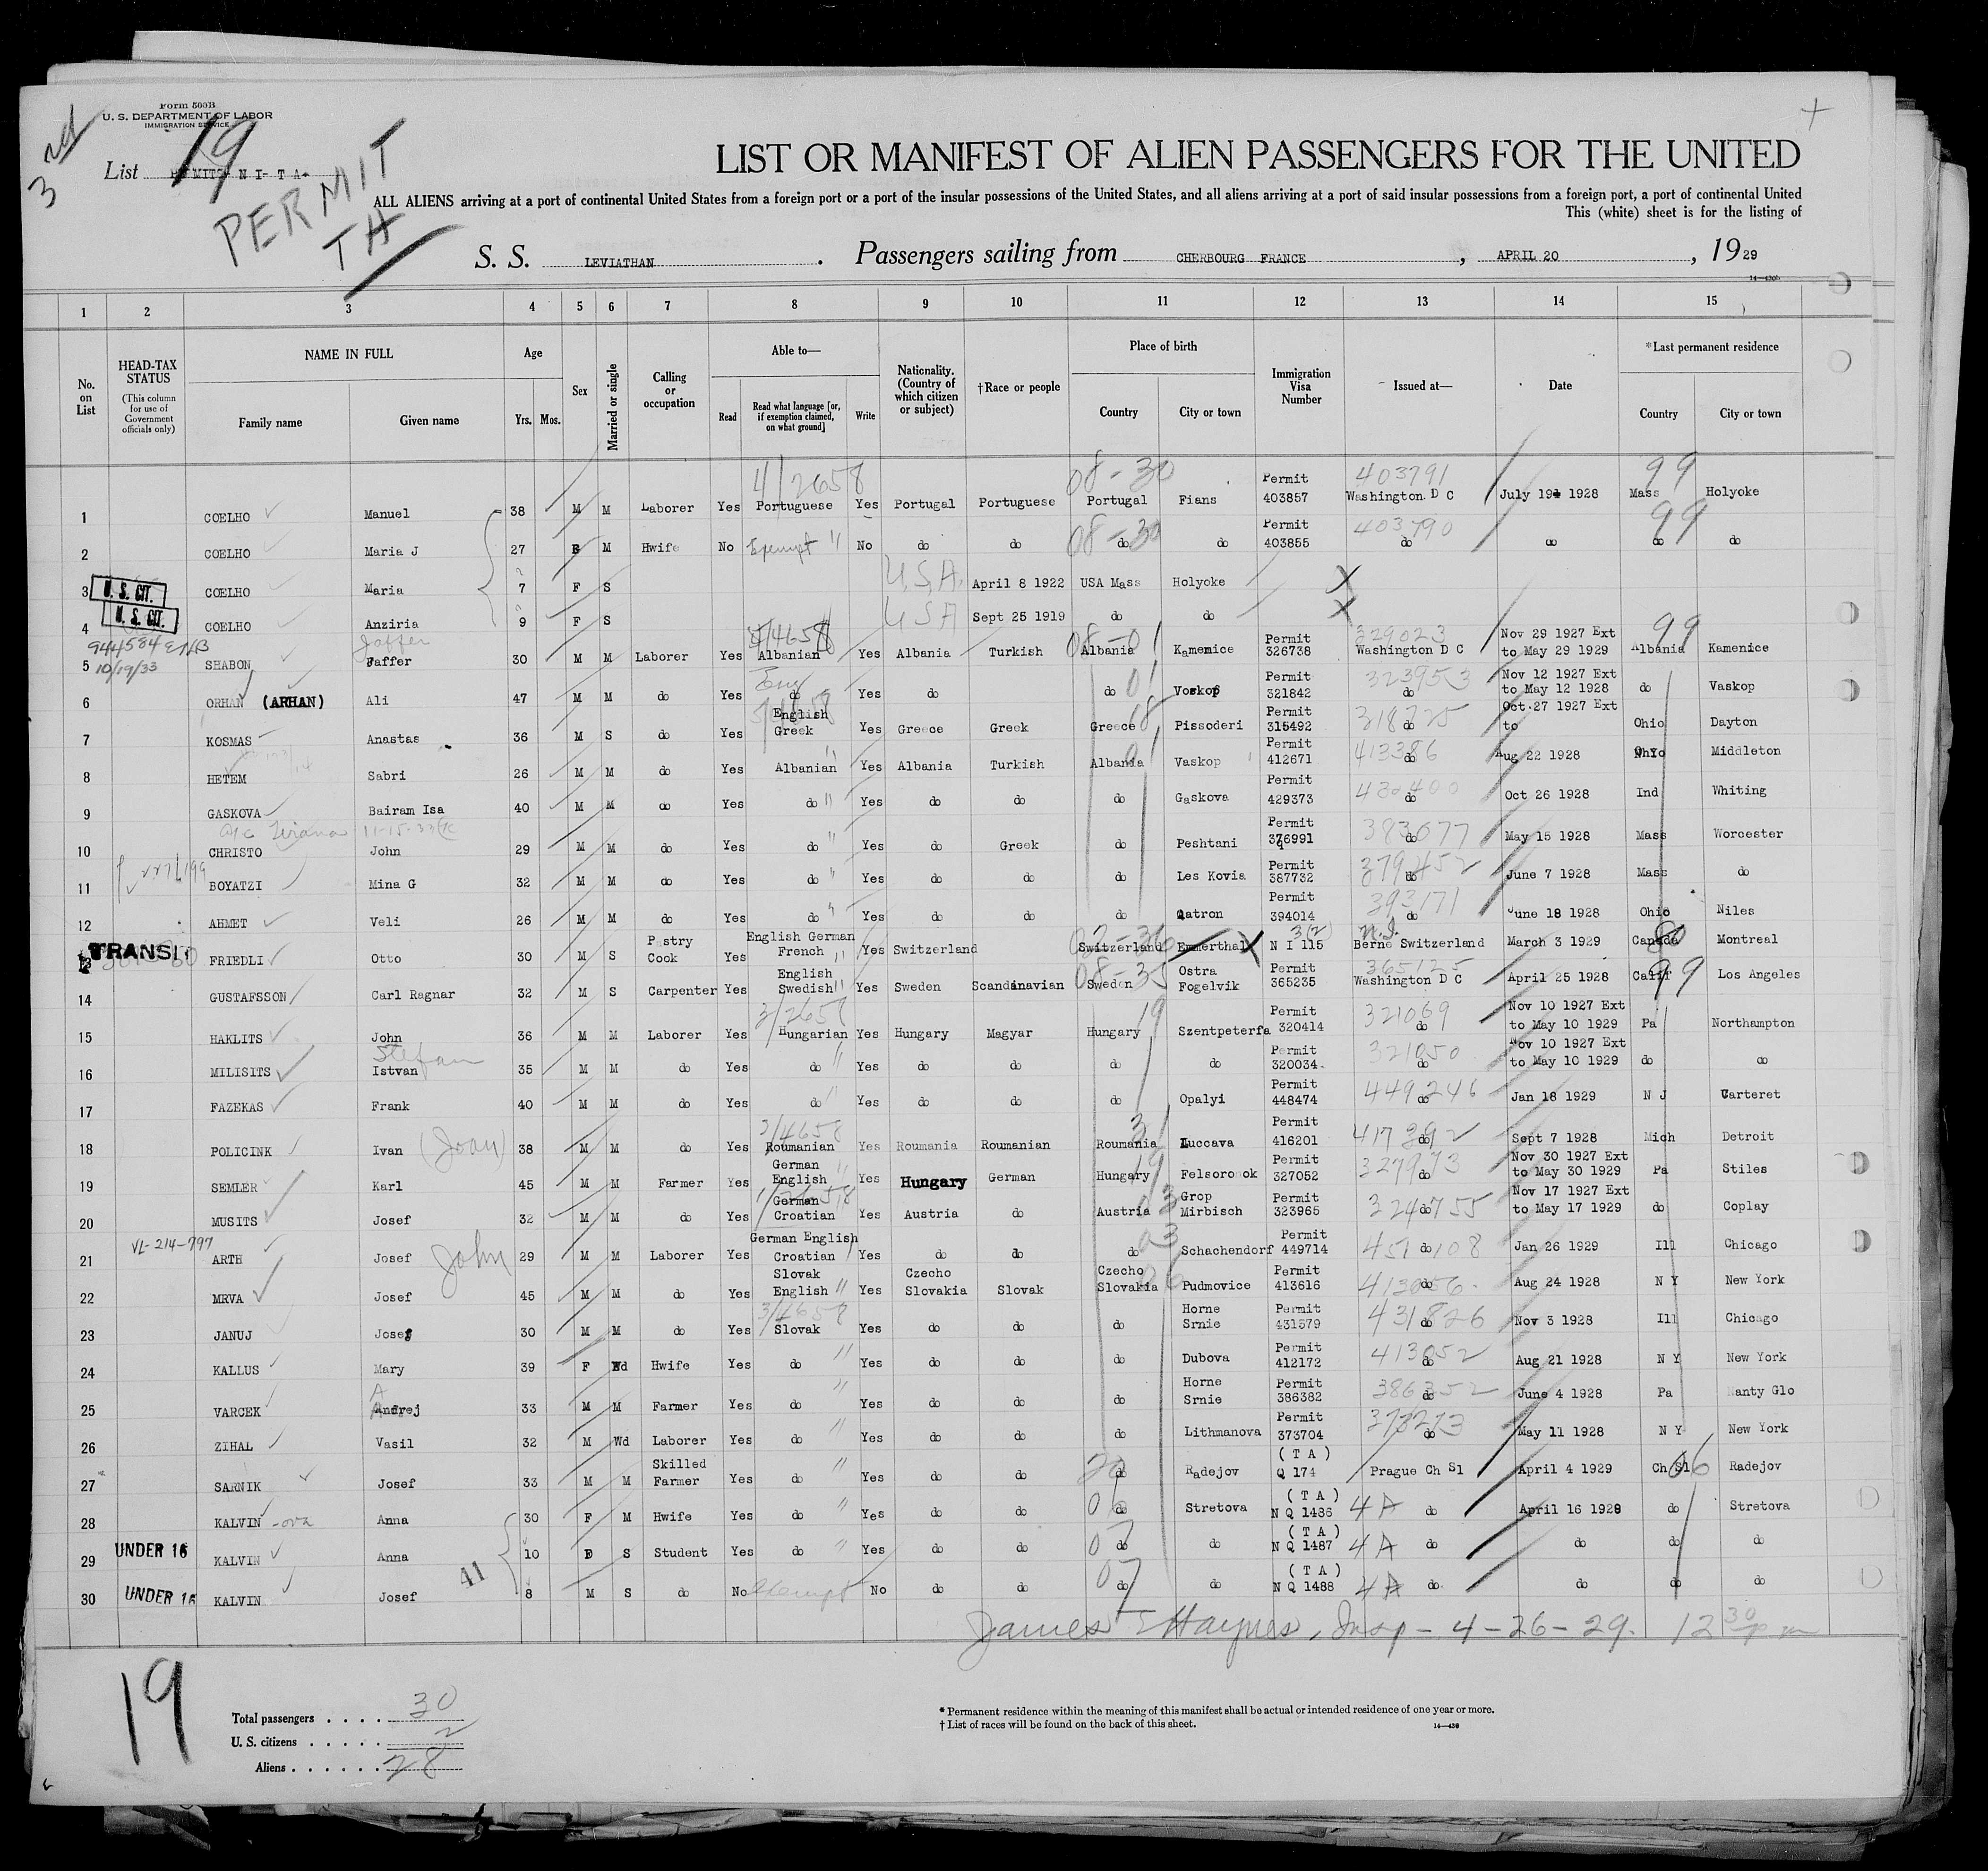 Form 500B
U. S. DEPARTMENT OF LABOR
IMMIGRATION SERVICE
3rd
List 19 N I- T A-
PERMIT
TA
LIST OR MANIFEST OF ALIEN PASSENGERS FOR THE UNITED
ALL ALIENS arriving at a port of continental United States from a foreign port or a port of the insular possessions of the United States, and all aliens arriving at a port of said insular possessions from a foreign port, a port of continental United
This (white) sheet is for the listing of
S. S. LEVIATHAN . Passengers sailing from CHERBOURG FRANCE , APRIL 20 , 1929
1 2 3 4 5 6 7 8 9 10 11 12 13 14 15
No. on List
HEAD-TAX STATUS (This column for use of Government officials only)
NAME IN FULL
Family name Given name
Age
Yrs. Mos.
Sex
Married or single
Calling or occupation
Able to—
Read Read what language [or, if exemption claimed, on what ground] Write
Nationality. (Country of which citizen or subject)
†Race or people
Place of birth
Country City or town
Immigration Visa Number
Issued at—
Date
*Last permanent residence
Country City or town
4/2658 08-30 403791 99
1 COELHO Manuel 38 M M Laborer Yes Portuguese Yes Portugal Portuguese Portugal Fians Permit 403857 Washington D C July 19 1928 Mass Holyoke
08-30 403790 99
2 COELHO Maria J 27 F M Hwife No Exempt " No do do do do Permit 403855 do do do do
3 U. S. CIT. COELHO Maria 7 F S U.S.A. April 8 1922 USA Mass Holyoke X
4 U. S. CIT. COELHO Anziria 9 F S USA Sept 25 1919 do do X
944584 ENB 10/19/33 Jaffer 4/4658 08-01 329023 99
5 SHABON Jaffer 30 M M Laborer Yes Albanian Yes Albania Turkish Albania Kamenice Permit 326738 Washington D C Nov 29 1927 Ext to May 29 1929 Albania Kamenice
Eng 01 323953
6 ORHAN (ARHAN) Ali 47 M M do Yes do Yes do do Voskop Permit 321842 do Nov 12 1927 Ext to May 12 1928 do Vaskop
318725
7 KOSMAS Anastas 36 M S do Yes English Greek Yes Greece Greek Greece Pissoderi Permit 315492 do Oct 27 1927 Ext to Ohio Dayton
413386
8 HETEM Sabri 26 M M do Yes Albanian " Yes Albania Turkish Albania Vaskop Permit 412671 do Aug 22 1928 Ohio Middleton
430400
9 GASKOVA Bairam Isa 40 M M do Yes do " Yes do do do Gaskova Permit 429373 do Oct 26 1928 Ind Whiting
Tirana 11-15-33 383677
10 CHRISTO John 29 M M do Yes do " Yes do Greek do Peshtani Permit 376991 do May 15 1928 Mass Worcester
379452
11 BOYATZI Mina G 32 M M do Yes do " Yes do do do Les Kovia Permit 387732 do June 7 1928 Mass do
393171
12 AHMET Veli 26 M M do Yes do " Yes do do do Qatron Permit 394014 do June 18 1928 Ohio Niles
TRANSIT FRIEDLI Otto 30 M S Pastry Cook Yes English German French " Yes Switzerland Switzerland Emmerthal X N I 115 Berne Switzerland March 3 1929 Canada Montreal
08-35 365125 99
14 GUSTAFSSON Carl Ragnar 32 M S Carpenter Yes English Swedish " Yes Sweden Scandinavian Sweden Ostra Fogelvik Permit 365235 Washington D C April 25 1928 Calif Los Angeles
3/2658 19 321069
15 HAKLITS John 36 M M Laborer Yes Hungarian Yes Hungary Magyar Hungary Szentpeterfa Permit 320414 do Nov 10 1927 Ext to May 10 1929 Pa Northampton
Stefan 321050
16 MILISITS Istvan 35 M M do Yes do " Yes do do do do Permit 320034 do Nov 10 1927 Ext to May 10 1929 do do
449246
17 FAZEKAS Frank 40 M M do Yes do " Yes do do do Opalyi Permit 448474 do Jan 18 1929 N J Carteret
3/4658 417392
18 POLICINK Ivan (Joan) 38 M M do Yes Roumanian Yes Roumania Roumanian Roumania Luccava Permit 416201 do Sept 7 1928 Mich Detroit
19 327973
19 SEMLER Karl 45 M M Farmer Yes German English " Yes Hungary German Hungary Felsoronok Permit 327052 do Nov 30 1927 Ext to May 30 1929 Pa Stiles
03 324755
20 MUSITS Josef 32 M M do Yes German Croatian Yes Austria do Austria Grop Mirbisch Permit 323965 do Nov 17 1927 Ext to May 17 1929 do Coplay
VL-214-797 03 451108
21 ARTH Josef John 29 M M Laborer Yes German English Croatian Yes do do do Schachendorf Permit 449714 do Jan 26 1929 Ill Chicago
06 413056
22 MRVA Josef 45 M M do Yes Slovak English " Yes Czecho Slovakia Slovak Czecho Slovakia Pudmovice Permit 413616 do Aug 24 1928 N Y New York
3/4658 431826
23 JANUJ Josef 30 M M do Yes Slovak Yes do do do Horne Srnie Permit 431579 do Nov 3 1928 Ill Chicago
413052
24 KALLUS Mary 39 F Wd Hwife Yes do " Yes do do do Dubova Permit 412172 do Aug 21 1928 N Y New York
386352
25 VARCEK Andrej 33 M M Farmer Yes do " Yes do do do Horne Srnie Permit 386382 do June 4 1928 Pa Nanty Glo
373273
26 ZIHAL Vasil 32 M Wd Laborer Yes do " Yes do do do Lithmanova Permit 373704 do May 11 1928 N Y New York
27 SARNIK Josef 33 M M Skilled Farmer Yes do " Yes do do do Radejov (T A) Q 174 Prague Ch Sl April 4 1929 Ch Sl 06 Radejov
28 KALVIN -ova Anna 30 F M Hwife Yes do " Yes do do do Stretova (T A) N Q 1486 4A do April 16 1929 do Stretova
29 UNDER 16 KALVIN Anna 10 F S Student Yes do " Yes do do do do (T A) N Q 1487 4A do do do do
30 UNDER 16 KALVIN 41 Josef 8 M S do No Exempt No do do do do (T A) N Q 1488 4A do do do do
James E Haynes, Insp - 4-26-29. 12 30 pm
19
Total passengers . . . . 30
U. S. citizens . . . . . 2
Aliens . . . . . . 28
* Permanent residence within the meaning of this manifest shall be actual or intended residence of one year or more.
† List of races will be found on the back of this sheet. 14—436